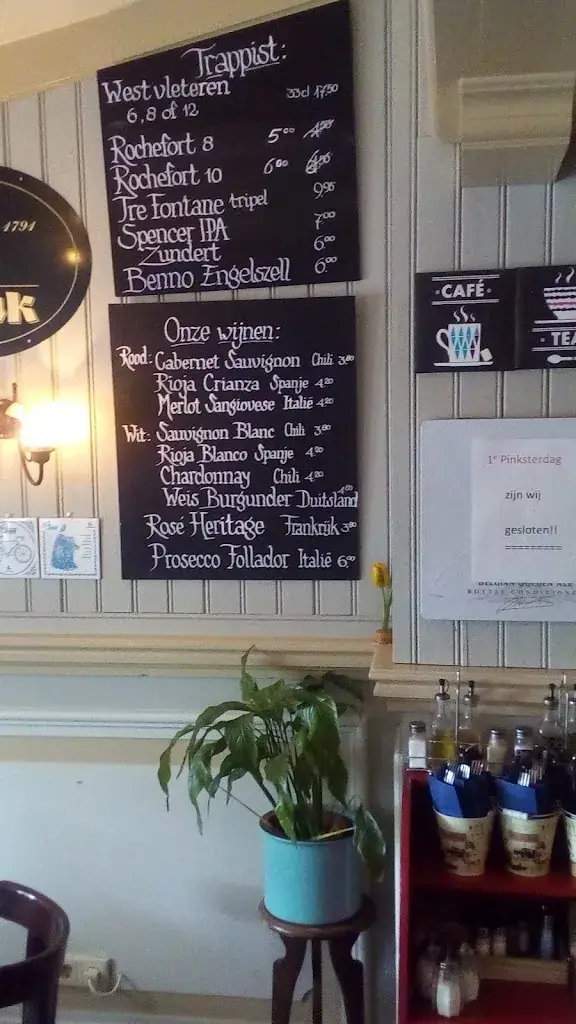 Trappist:
Westvleteren 33cl 17.50
6, 8 of 12
Rochefort 8 5°°
Rochefort 10 6°°
Tre Fontane tripel 9,95
Spencer IPA 7°°
Zundert 6°°
Benno Engelszell 6.°°
1791
ok
Onze wijnen:
Rood: Cabernet Sauvignon Chili 3.80
Rioja Crianza Spanje 4.20
Merlot Sangiovese Italië 4.20
Wit: Sauvignon Blanc Chili 3.80
Rioja Blanco Spanje 4.20
Chardonnay Chili 4.20
Weis Burgunder Duitsland 4.80
Rosé Heritage Frankrijk 3.80
Prosecco Follador Italië 6.00
·CAFÉ·
·TEA
1e Pinksterdag
zijn wij
gesloten!!
========
BELGIAN GOLDEN ALE
BOTTLE CONDITIONED